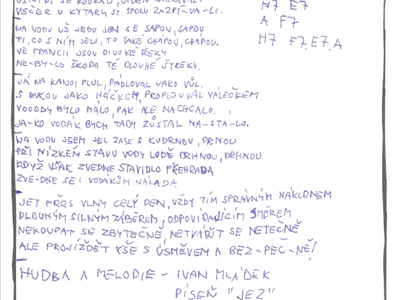 VEČER U KYTARY SI SPOLU ZAZPÍ-VA-LI.
H7 E7
A F7
H7 F7.E7.A
NA VODU UŽ JEDU JEN SE SAPOU, SAPOU
TI, CO S NÍM JELI, TO TAKÉ CHÁPOU, CHÁPOU.
VE FRANCII JSOU DIVOKÉ ŘEKY
NE-BY-LO ŠKODA TÉ DLOUHÉ ŠTREKY.
JÁ NA KANOI PLUL, PÁDLOVAL JAKO VŮL.
S DUKOU JAKO HÁČKEM, PROPLOUVAL VÁLEČKEM
VOOODY BYLO MÁLO, PAK ALE NACHCALO.
JA-KO VODÁK BYCH TADY ZŮSTAL NA-STA-LO.
NA VODU JSEM JEL ZASE S KUDRNOU, DRNOU
PŘI NÍZKÉM STAVU VODY LODĚ DRHNOU, DRHNOU
KDYŽ VŠAK ZVEDNE STAVIDLO PŘEHRADA
ZVE-DNE SE I VODÁKŮM NÁLADA
JET PŘES VLNY CELÝ DEN, VŽDY TÍM SPRÁVNÝM NÁKLONEM
DLOUHÝM SILNÝM ZÁBĚREM, ODPOVÍDAJÍCÍM SMĚREM
NEKOUPAT SE ZBYTEČNĚ, NETVÁŘIT SE NETEČNĚ
ALE PROJÍŽDĚT VŠE S ÚSMĚVEM A BEZ-PEČ-NĚ!
HUDBA A MELODIE - IVAN MLÁDEK
PÍSEŇ "JEZ"